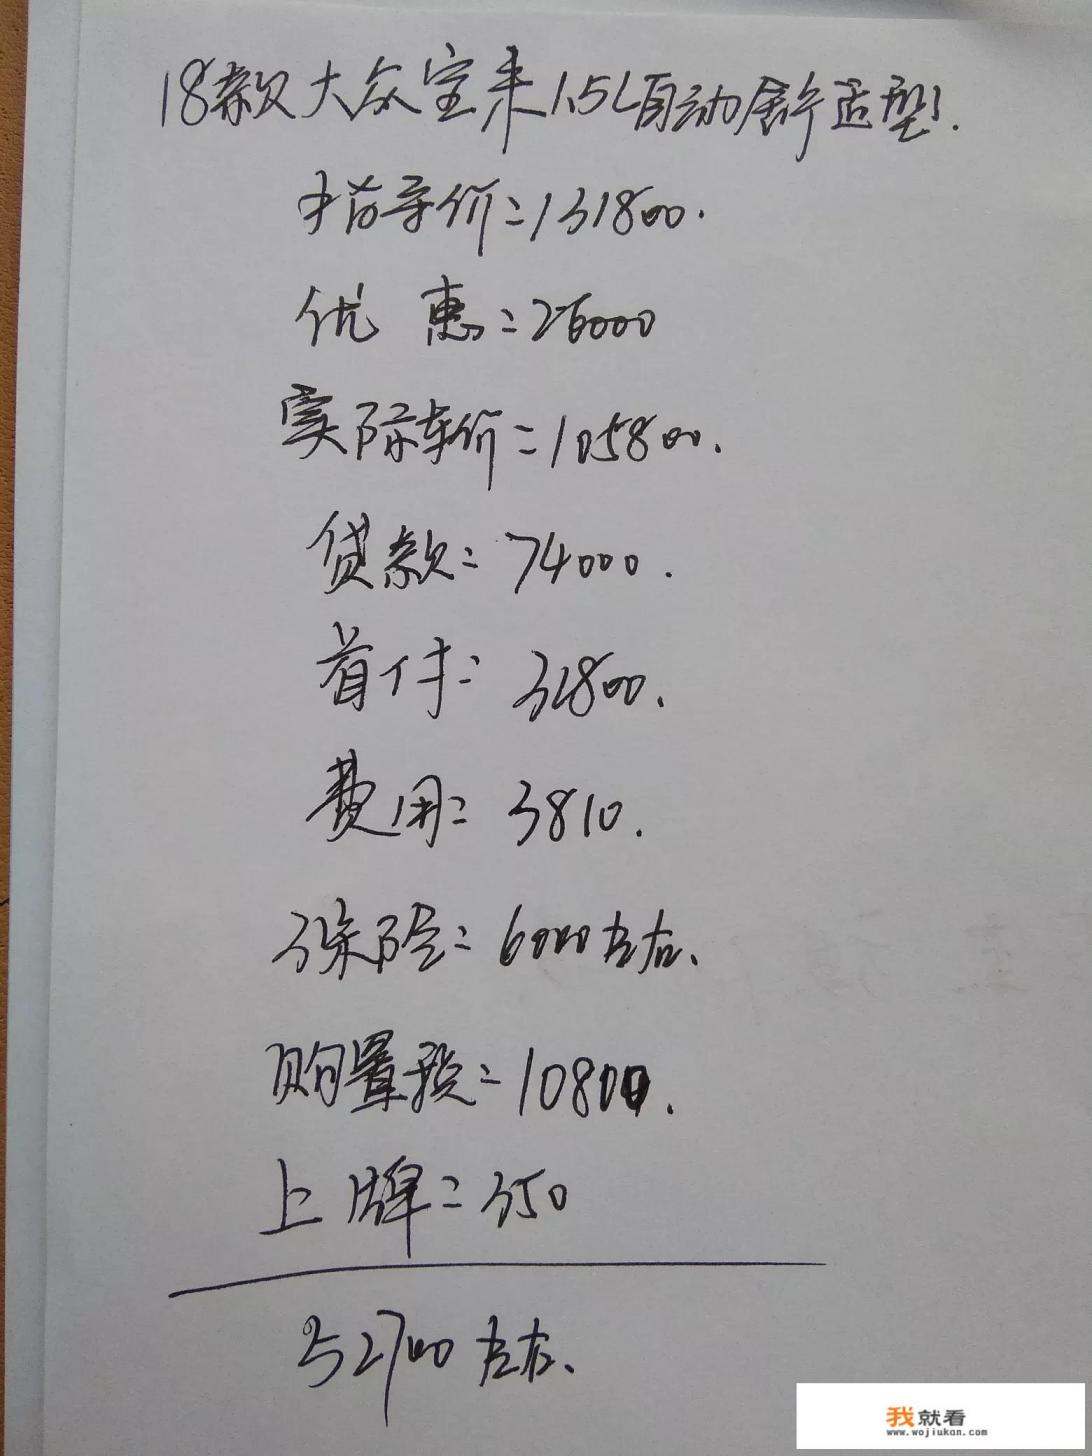 18款大众宝来1.5L自动舒适型.
指导价=131800.
优 惠=26000
实际车价=105800.
贷款=74000.
首付=31800.
费用=3810.
保险=6000左右.
购置税=10800.
上牌=350
52700左右.
我就看
www.wojiukan.com